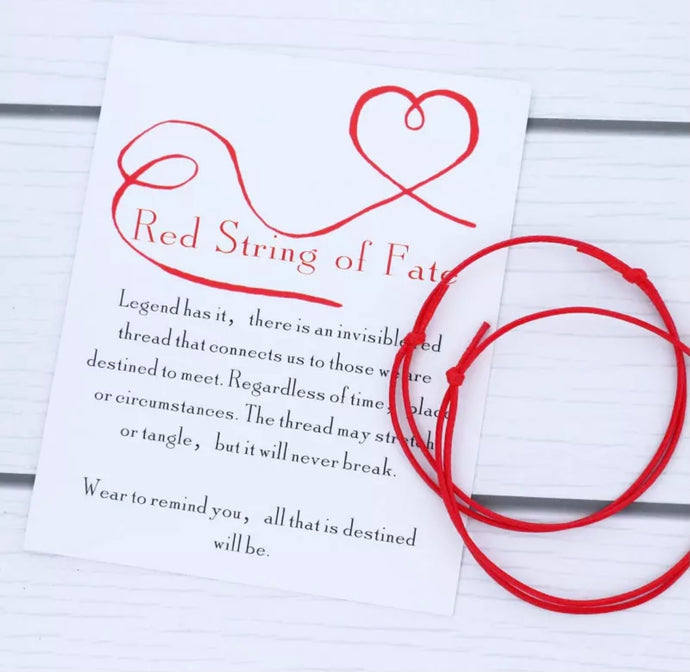 Red String of Fate
Legend has it, there is an invisible red
thread that connects us to those we are
destined to meet. Regardless of time, place
or circumstances. The thread may stretch
or tangle, but it will never break.
Wear to remind you, all that is destined
will be.